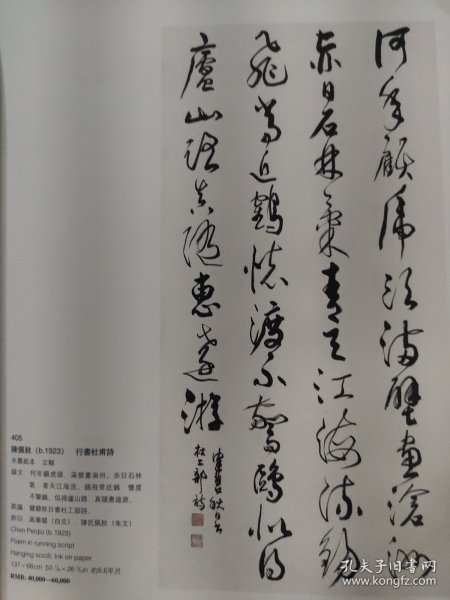 何年顧虎頭滿壁畫滄洲
赤日石林氣青天江海流錫
飛常近鶴杯渡不驚鷗似得
廬山路真隨惠遠遊
健碧秋日書
杜工部詩
405
陳佩秋 (b.1923) 行書杜甫詩
水墨紙本 立軸
釋文：何年顧虎頭，滿壁畫滄州。赤日石林
氣，青天江海流。錫飛常近鶴，懷度
不驚鷗。似得廬山路，真隨惠遠游。
款識：健碧秋日書杜工部詩。
鈐印：高華閣（白文） 陳氏佩秋（朱文）
Chen Peiqiu (b.1923)
Poem in running script
Hanging scroll; Ink on paper
137×68cm 約8.6平尺
RMB: 40,000—60,000
孔夫子旧书网